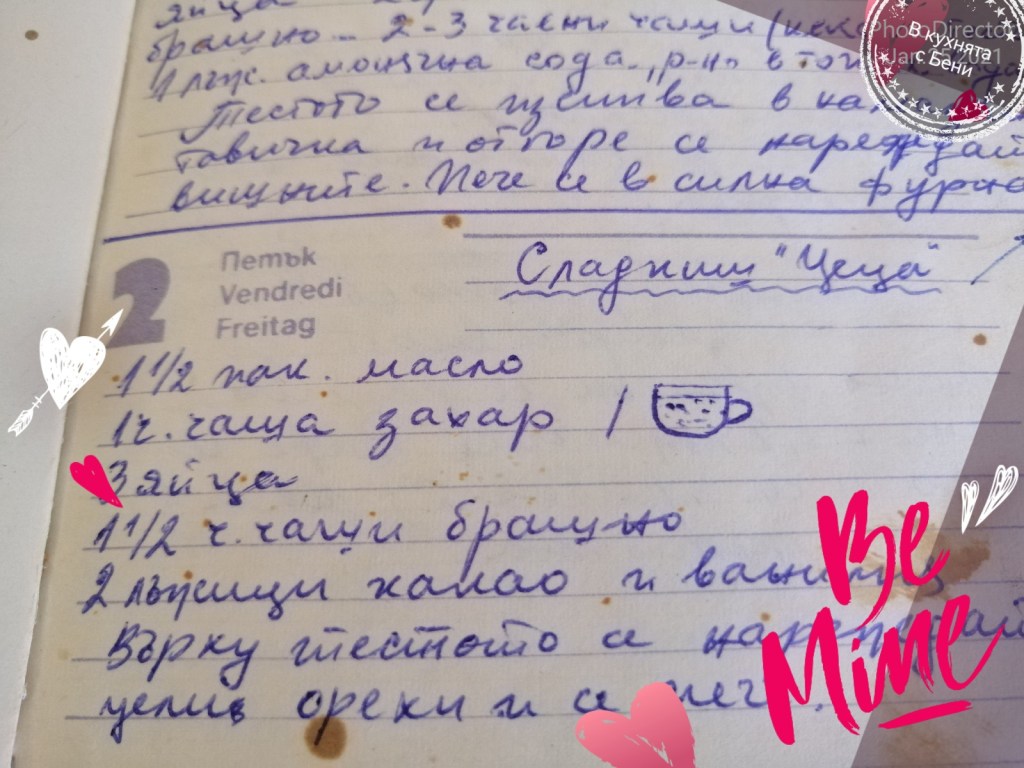 яйца
брашно - 2-3 чаени чаши (
1 лъж. амонячна сода.,
Тестото се изсипва в
тавичка и отгоре се нареждат
вишните. Пече се в силна фурна
2
Петък
Vendredi
Freitag
Сладкиш "Цеца"
1 1/2 пак. масло
1 ч. чаша захар 1
3 яйца
1 1/2 ч. чаши брашно
2 лъжици какао и ванилия
Върху тестото се нареждат
цели орехи и се пече.
Be
Mine
В кухнята
с Бени